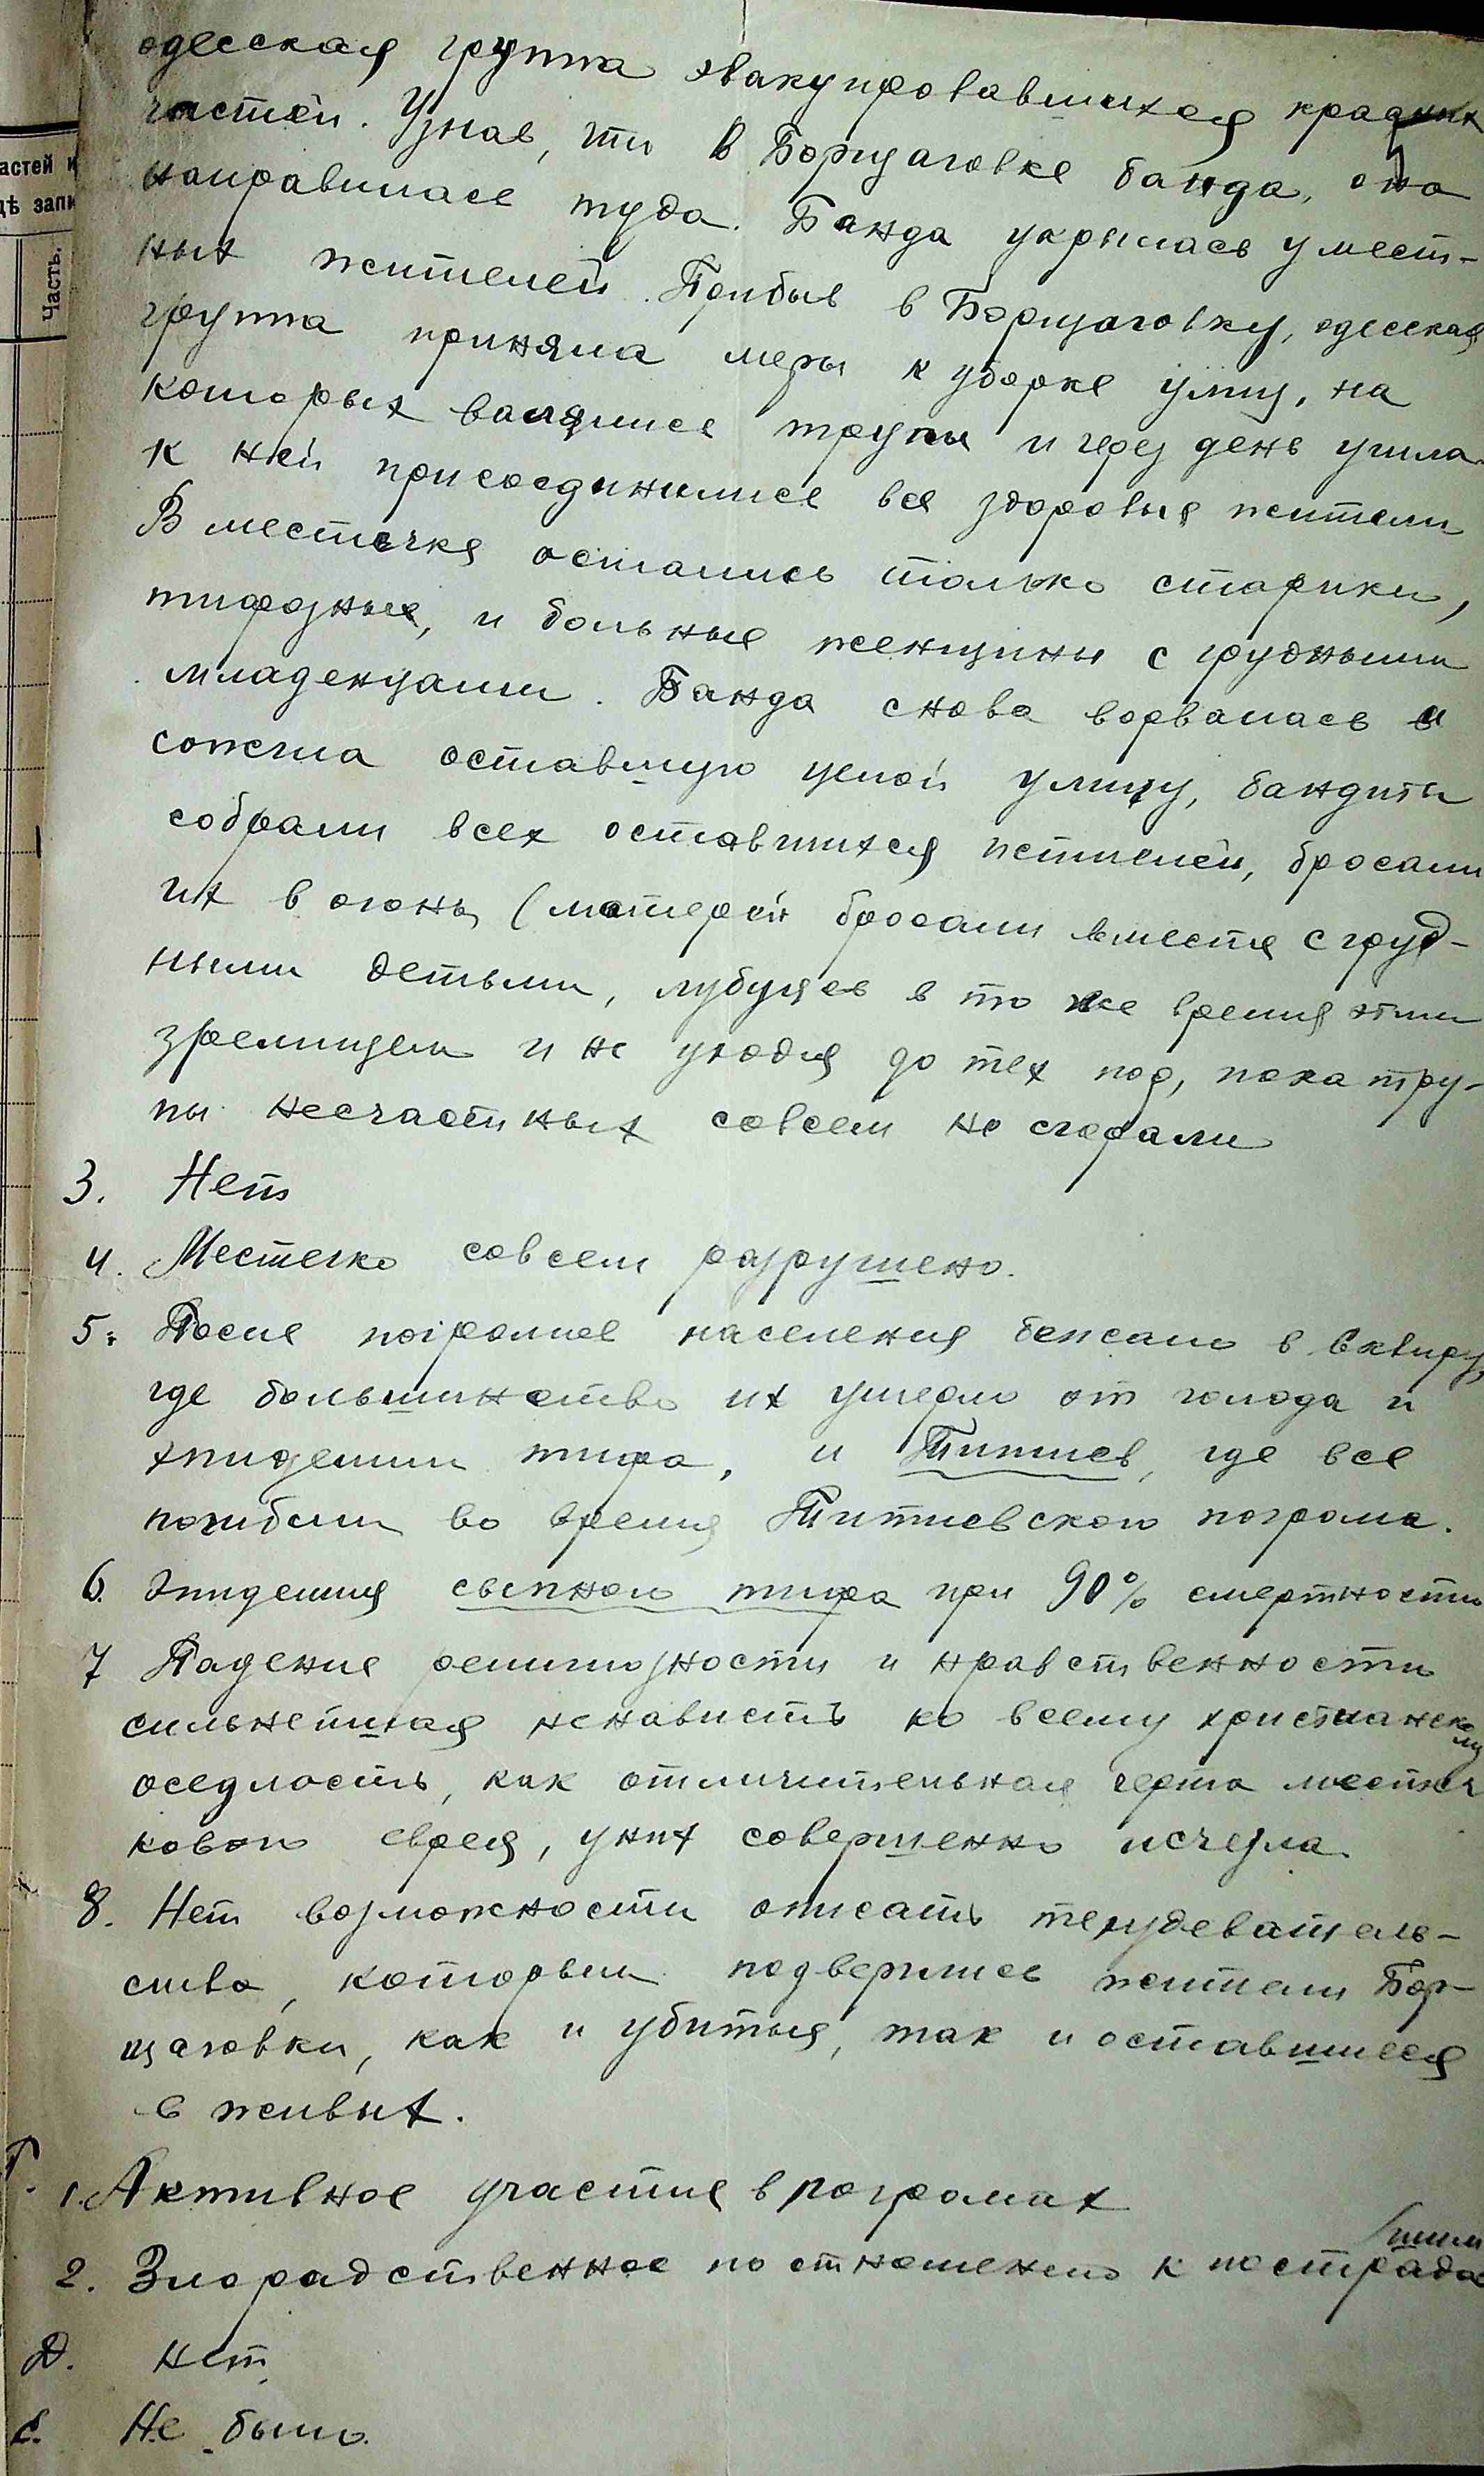 одесская группа эвакуировавшихся красных
частей. Узнав, что в Борщаговке банда, она
направилась туда. Банда укрылась у мест-
ных жителей. Прибыв в Борщаговку, одесская
группа приняла меры к уборке улиц, на
которых валялись трупы и через день ушла
к ней присоединились все здоровые жители
В местечке остались только старики,
тифозные, и больные женщины с грудными
младенцами. Банда снова ворвалась и
сожгла оставшую целой улицу, бандиты
собрали всех оставшихся жителей, бросали
их в огонь (матерей бросали вместе с груд-
ными детьми, любуясь в то же время этим
зрелищем и не уходя до тех пор, пока тру-
пы несчастных совсем не сгорали
3. Нет
4. Местечко совсем разрушено.
5. После погромов население бежало в Сквиру,
где большинство их умерло от голода и
эпидемии тифа, и Титиев, где все
погибли во время Титиевского погрома.
6. Эпидемия сыпного тифа при 90% смертности
7 Падение религиозности и нравственности
сильнейшая ненависть ко всему христианскому
оседлость, как отличительная черта местеч
кового еврея, у них совершенно исчезла.
8. Нет возможности описать те издевательс-
ства, которым подверглись жители Бор-
щаговки, как и убитые, так и оставшиеся
в живых.
Г. 1. Активное участие в погромах
2. Злорадственное по отношению к пострадавшим
Д. Нет
Е. Не было.
астей и
дѣ запи
Часть.